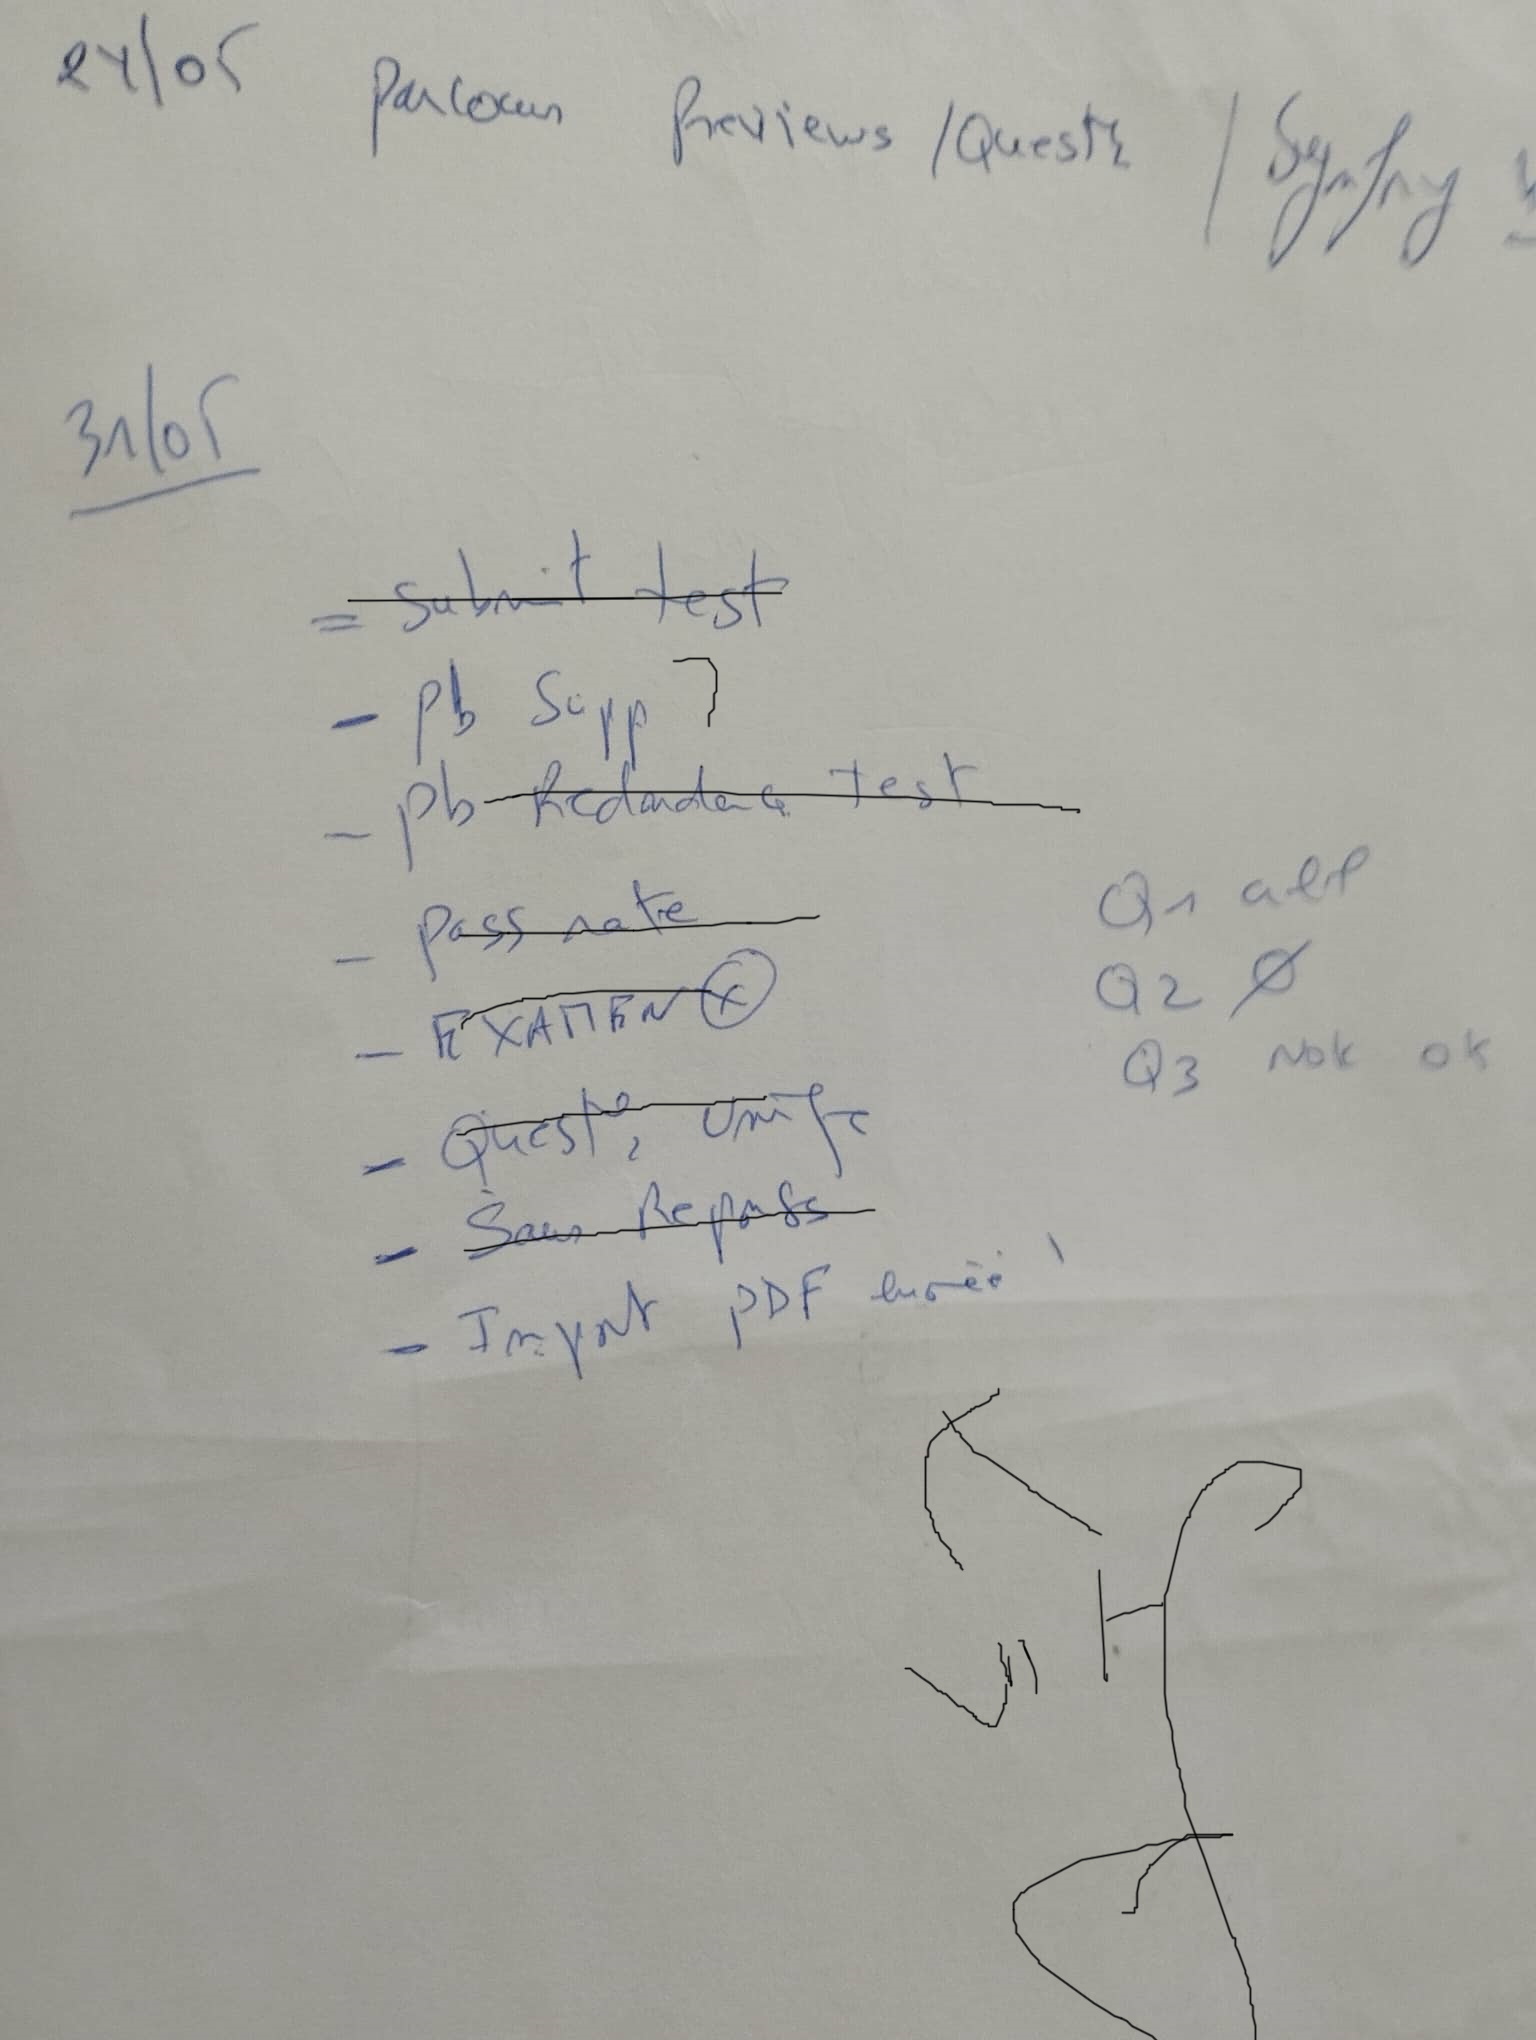 24/05 Parcours Previews / Quest / Symfny
31/05
= submit test
- Pb Supp ?
- Pb Redondance test
- Pass rate
- EXAMEN X
- Quest°, Unife
- Sans Reponses
- Import PDF
Q1
Q2 Ø
Q3 Nok ok